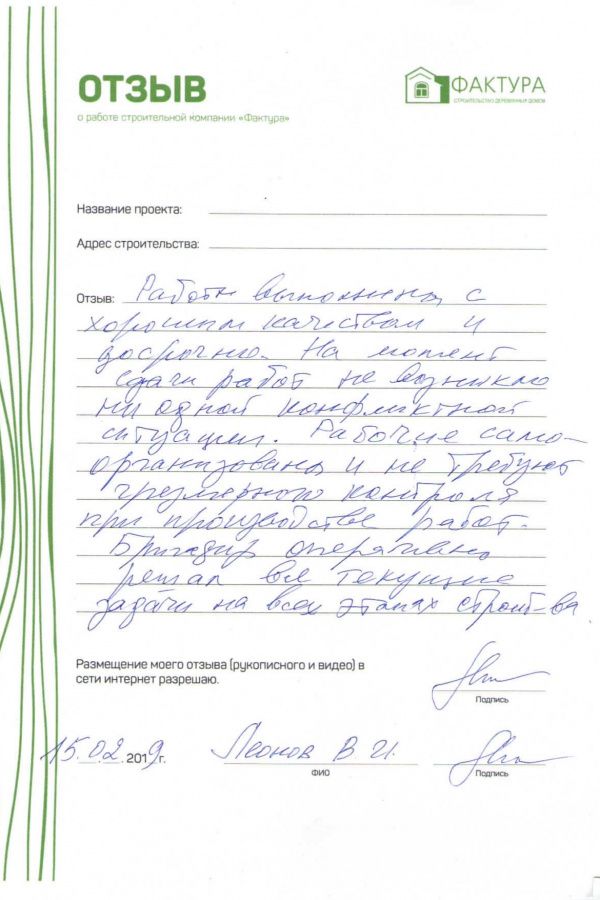 ОТЗЫВ
о работе строительной компании «Фактура»
ФАКТУРА
СТРОИТЕЛЬСТВО ДЕРЕВЯННЫХ ДОМОВ
Название проекта:
Адрес строительства:
Отзыв: Работы выполнены с
хорошим качеством и
досрочно. На момент
сдачи работ не возникло
ни одной конфликтной
ситуации. Рабочие само-
организованы и не требуют
чрезмерного контроля
при производстве работ.
Бригадир оперативно
решал все текущие
задачи на всех этапах строит-ва
Размещение моего отзыва (рукописного и видео) в
сети интернет разрешаю.
Подпись
15.02.2019г. Леонов В. И.
ФИО
Подпись